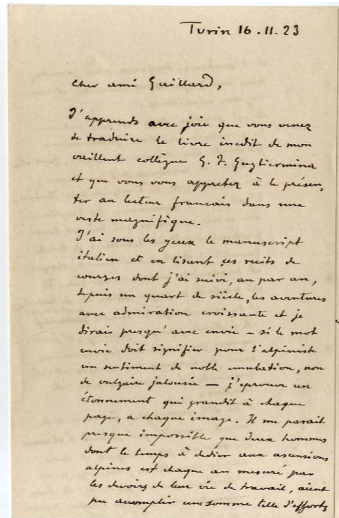 Turin 16.11.23
Cher ami Gaillard,
J'apprends avec joie que vous venez
de traduire le livre inédit de mon
vaillant collègue G. F. Gugliermina
et que vous vous apprêtez à le présen-
ter au lecteur français dans une
veste magnifique.
J'ai sous les yeux le manuscript
italien et en lisant ces récits de
courses dont j'ai suivi, an par an,
depuis un quart de siècle, les aventures
avec admiration croissante et je
dirais presqu'avec envie – si le mot
envie doit signifier pour l'alpiniste
un sentiment de noble émulation, non
de vulgaire jalousie — j'éprouve un
étonnement qui grandit à chaque
page, a chaque image. Il me parait
presque impossible que deux hommes
dont le temps à dédier aux ascensions
alpines est chaque an mesuré par
les devoirs de leur vie de travail, aient
pu accomplir une somme telle d'efforts